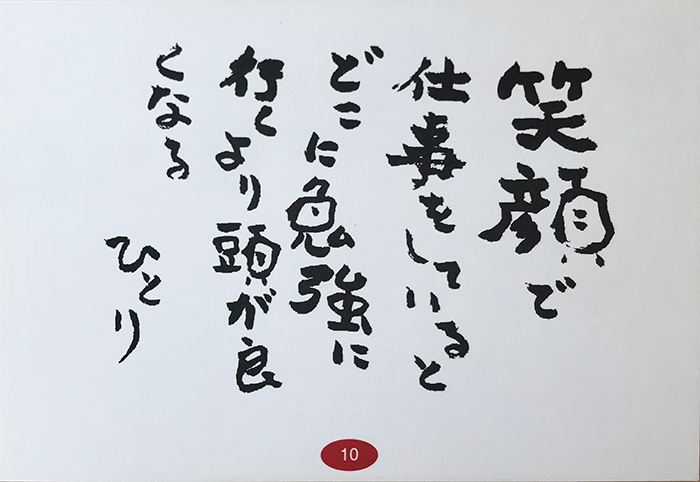 笑顔で
仕事をしていると
どこに勉強に
行くより頭が良
くなる
ひとり
10